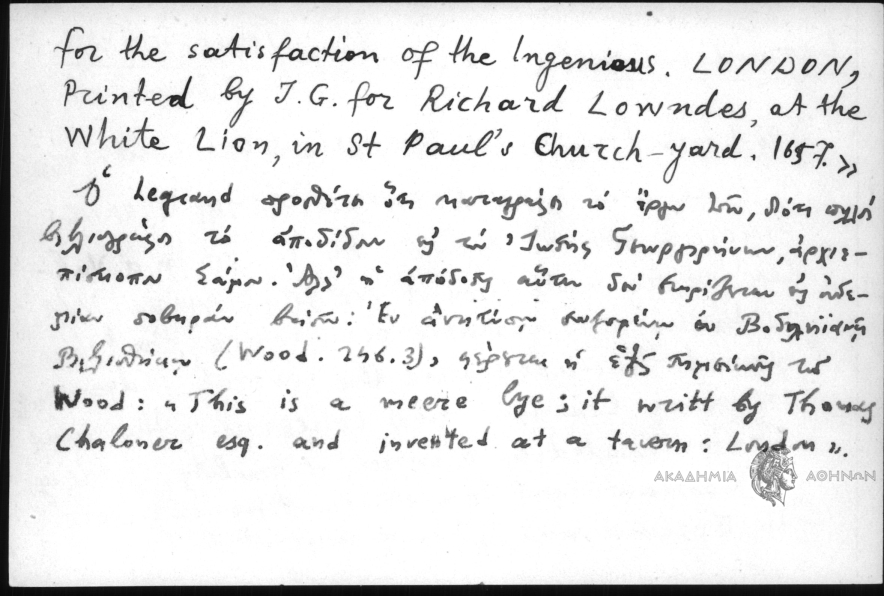 for the satisfaction of the Ingenious. LONDON,
Printed by J.G. for Richard Lowndes, at the
White Lion, in St Paul's Church-yard. 1657.»
Ὁ Legrand προσθέτει ὅτι καταγράφει τὸ ἔργον τοῦτο, διότι πολλοὶ
βιβλιογράφοι τὸ ἀποδίδουν εἰς τὸν Ἰωσὴφ Γεωργειρήνην, ἀρχιε-
πίσκοπον Σάμου. Ἀλλ' ἡ ἀπόδοσις αὕτη δὲν στηρίζεται εἰς οὐδε-
μίαν σοβαρὰν βάσιν: Ἐν ἀντιτύπῳ ἐν Βοδληϊανῇ
Βιβλιοθήκῃ (Wood. 246.3), φέρεται ἡ ἑξῆς σημείωσις τοῦ
Wood: «This is a meere lye; it writt by Thomas
Chaloner esq. and invented at a tavern: London».
ΑΚΑΔΗΜΙΑ ΑΘΗΝΩΝ